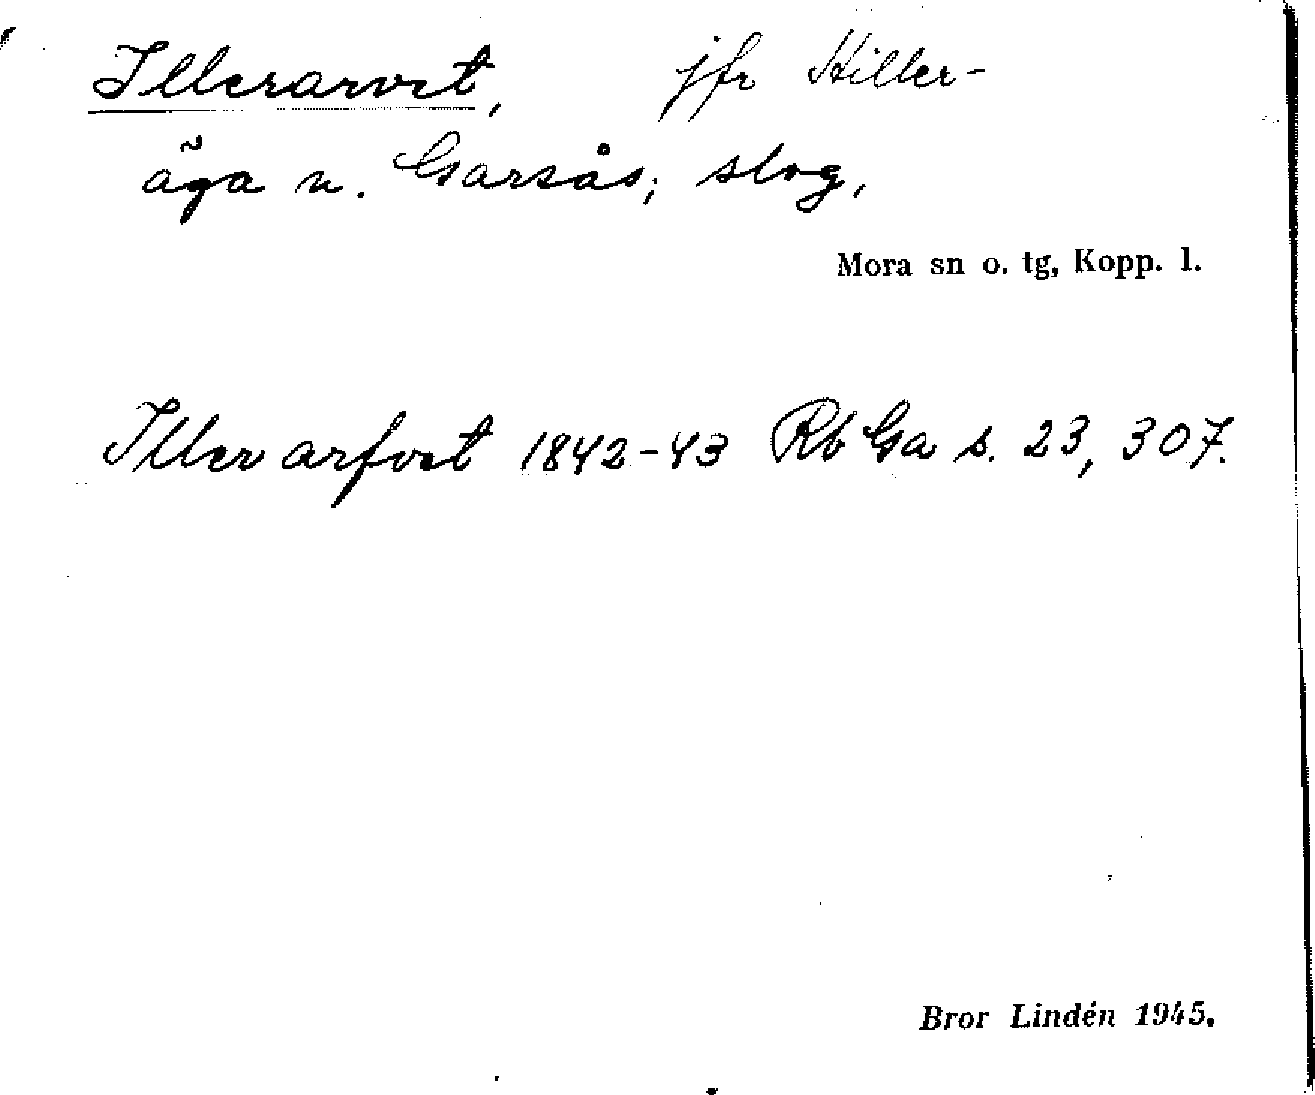 Illerarvet, jfr Hiller-
äga n. Garsås; slog,
Mora sn o. tg, Kopp. l.
Iller arfvet 1842-43 Rb Ga s. 23, 307.
Bror Lindén 1945.